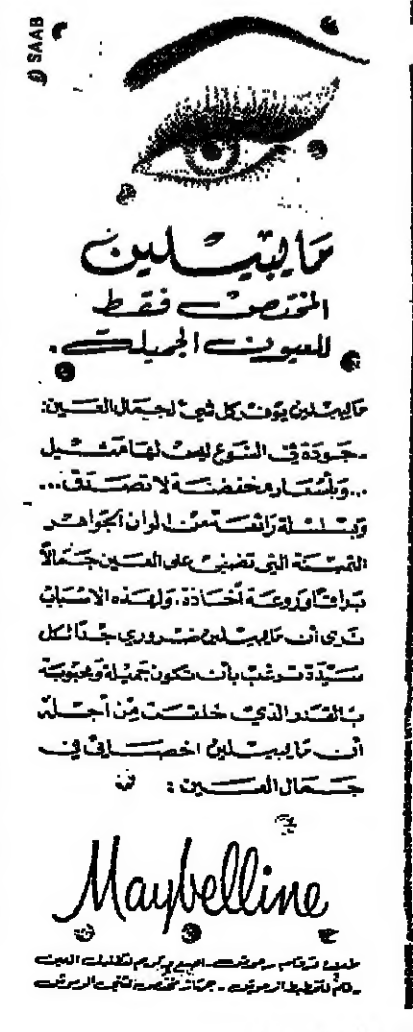 SAAB
مايبيللين
المختص فقط
للعيون الجميلة.
مايبيللين يوفر كل شيء لجمال العين:
ـ جودة في النوع ليس لها مثيل
... وبأسعار مخفضة لا تصدق ...
وبسلسلة رائعة من الوان الجواهر
الثمينة التي تضفي على العين جمالاً
براقاً وروعة أخاذة. ولهذه الاسباب
ترى أن مايبيللين ضروري جداً لكل
سيدة ترغب بأن تكون جميلة ومحبوبة
بالقدر الذي خلقت من أجله
أن مايبيللين اخصائي في
جمال العين :
Maybelline